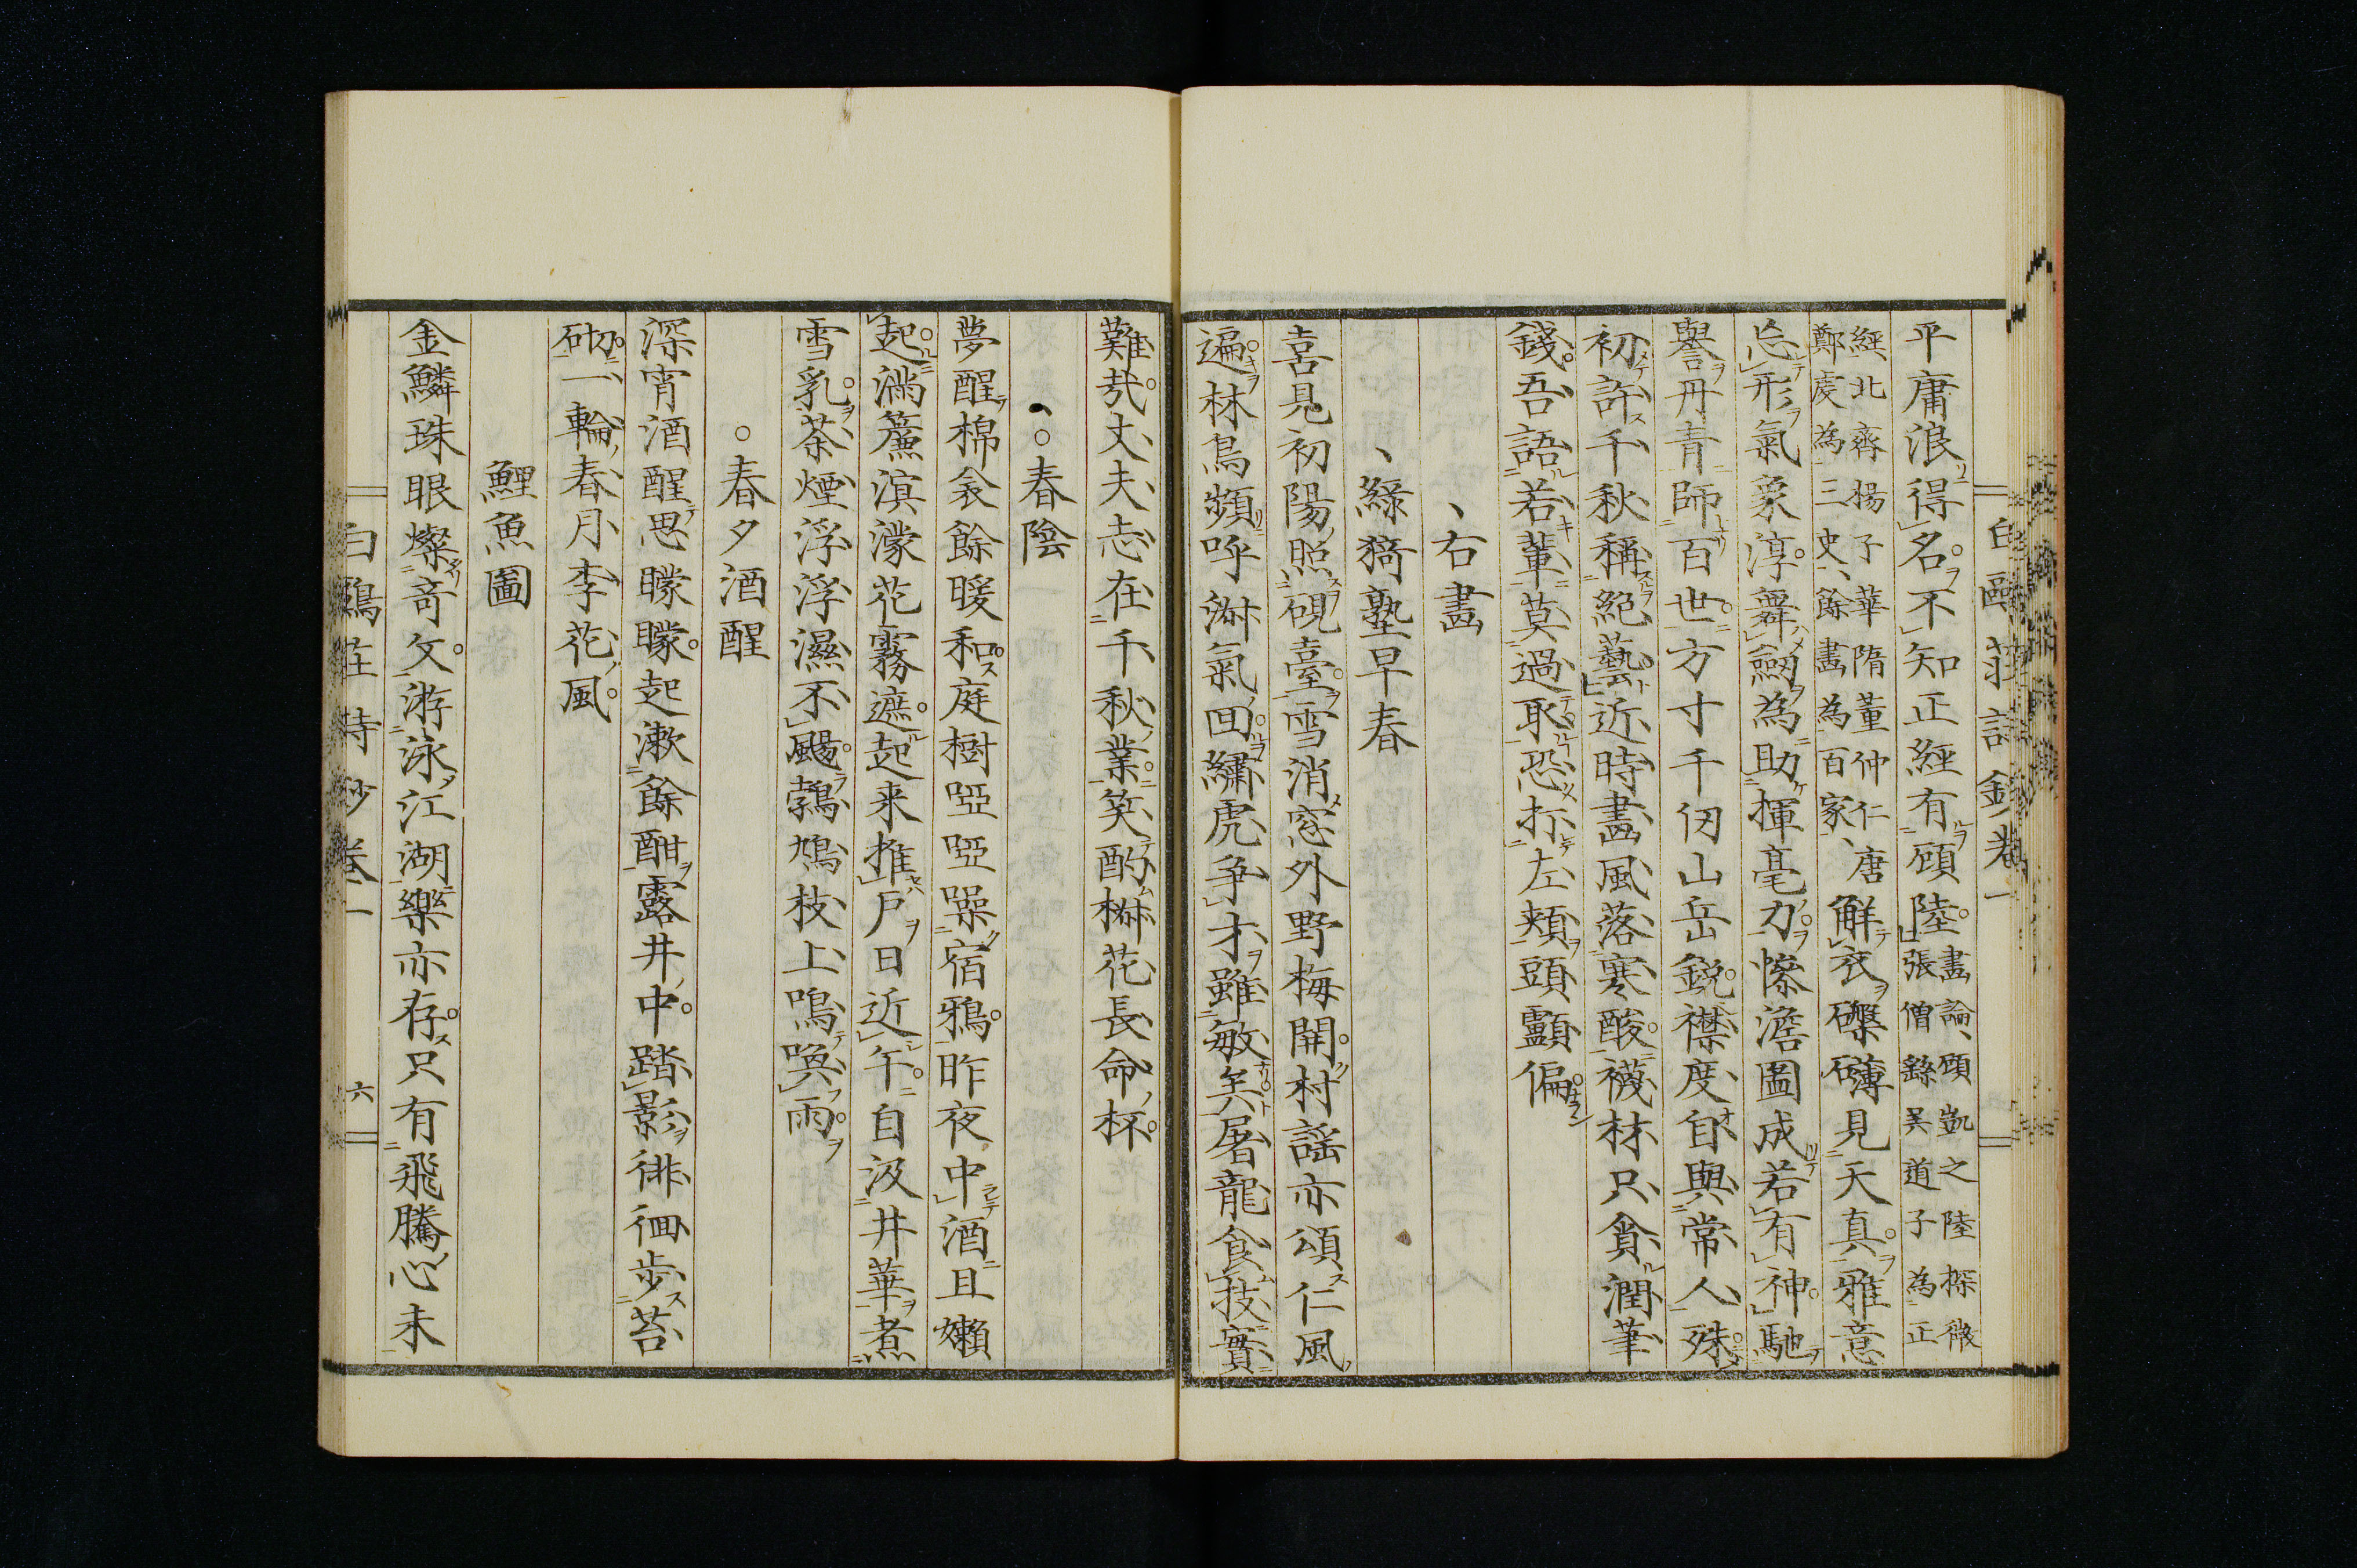 白鷗莊詩鈔卷一
平庸浪得名不知正經有顧陸畫論顧凱之陸探微張僧繇吴道子為正
經北齊楊子華隋董仲仁唐鄭虔為三史餘畫為百家解衣礫礴見天真雅意
忘形氣象淳舞劒為助揮毫力慘澹圖成若有神馳
譽丹青師百世方寸千仞山岳鋭襟度自與常人殊
初許千秋稱絕藝近時畫風落寒酸襪材只貪潤筆
錢吾語若輩莫過耴恐打左頰頭顱偏
右畫
綠猗塾早春
喜見初陽照硯臺雪消窓外野梅開村謡亦頌仁風
遍林鳥頻呼淑氣回繡虎爭才雖敏矣屠龍食技實
難哉丈夫志在千秋業笑酌椒花長命杯
春陰
夢醒棉衾餘暖和庭樹啞啞噪宿鴉昨夜中酒且嬾
起滿簾溟濛花霧遮起来推戶日近午自汲井華煮
雪乳茶煙浮浮濕不颺鵓鳩枝上鳴喚雨
春夕酒醒
深宵酒醒思矇矇起漱餘酣露井中踏影徘徊步苔
砌一輪春月李花風
鯉魚圖
金鱗珠眼燦奇文游泳江湖樂亦存只有飛騰心未
白鷗莊詩鈔卷一 六